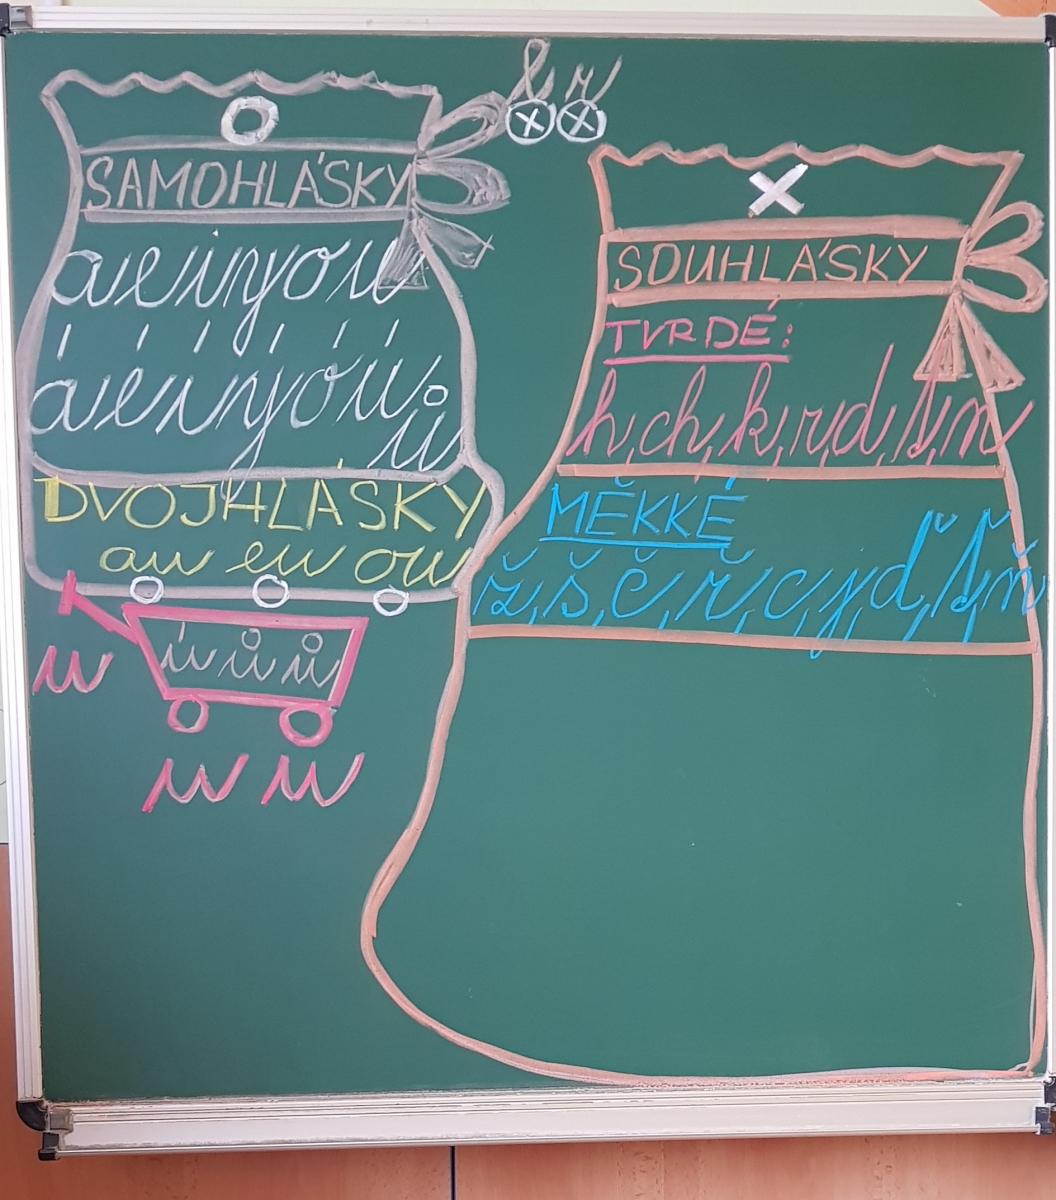 l r
x x
O
SAMOHLÁSKY
a e i y o u
á é í ý ó ú
ů
DVOJHLÁSKY
au eu ou
ú ů ů
u
u u
X
SOUHLÁSKY
TVRDÉ:
h, ch, k, r, d, t, n
MĚKKÉ
ž, š, č, ř, c, j, ď, ť, ň